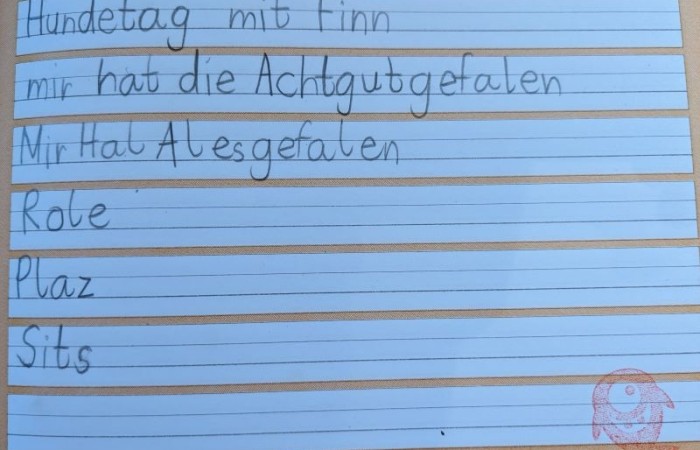 Hundetag mit Finn
mir hat die Achtgutgefalen
Mir Hat Alesgefalen
Role
Plaz
Sits